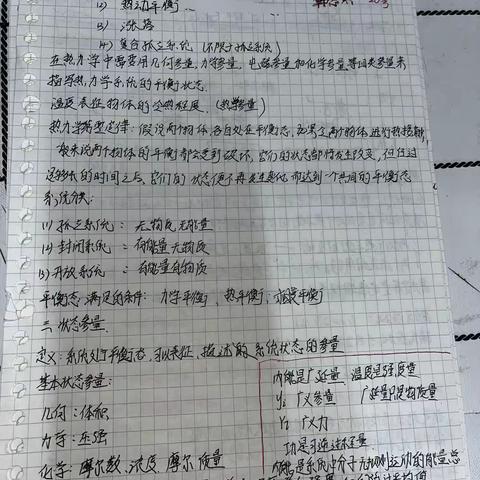 2) 热动平衡
3) 涨落
4) 复合孤立系统 (不限于孤立系统)
在热力学中需要用几何参量, 力学参量, 电磁参量和化学参量等四类参量来
描写热力学系统的平衡状态.
温度表征物体的冷热程度. (热参量)
热力学第零定律: 假设两个物体各自处在平衡态, 两个物体进行热接触,
一般来说两个物体的平衡都会受到破坏, 它们的状态都将发生改变, 但经过
足够长的时间之后, 它们的状态便不再发生变化, 而达到一个共同的平衡态
系统分类:
(1) 孤立系统 : 无物质, 无能量
(2) 封闭系统 : 有能量无物质
(3) 开放系统 : 有能量有物质
平衡态满足的条件: 力学平衡, 热平衡, 平衡
二. 状态参量.
定义: 系统处于平衡态, 可以表征, 描述的系统状态的参量
基本状态参量:
几何: 体积
力学: 压强
化学: 摩尔数, 浓度, 摩尔质量
内能是广延量 温度是强度量
yᵢ 广义参量 广延量
Yᵢ 广义力
功是过程量
内能是系统中分子无规则运动的能量总